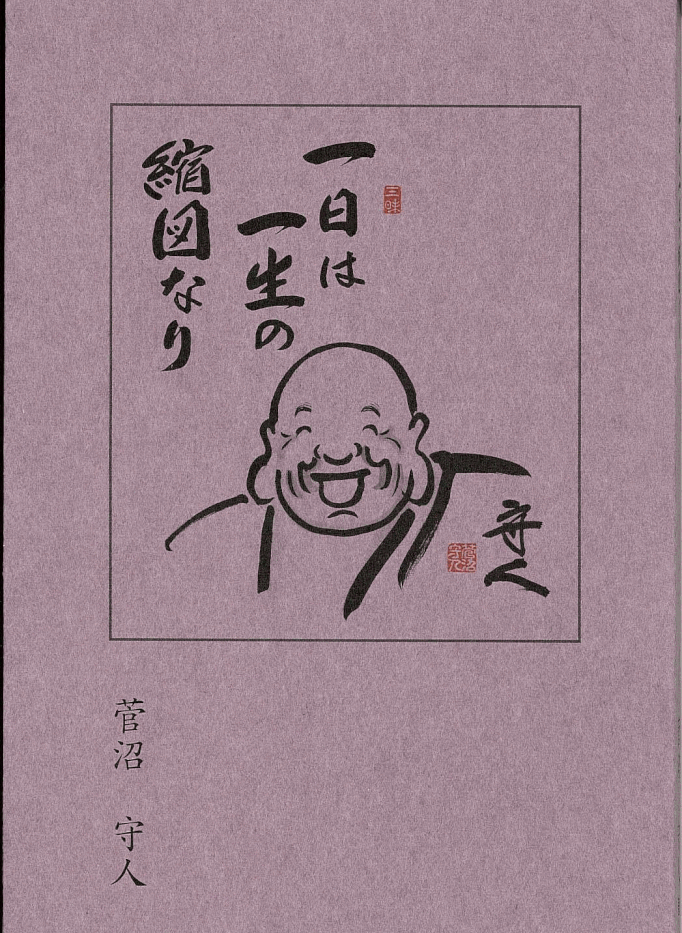 一日は
一生の
縮図なり
三昧
守人
菅沼守人
菅沼 守人